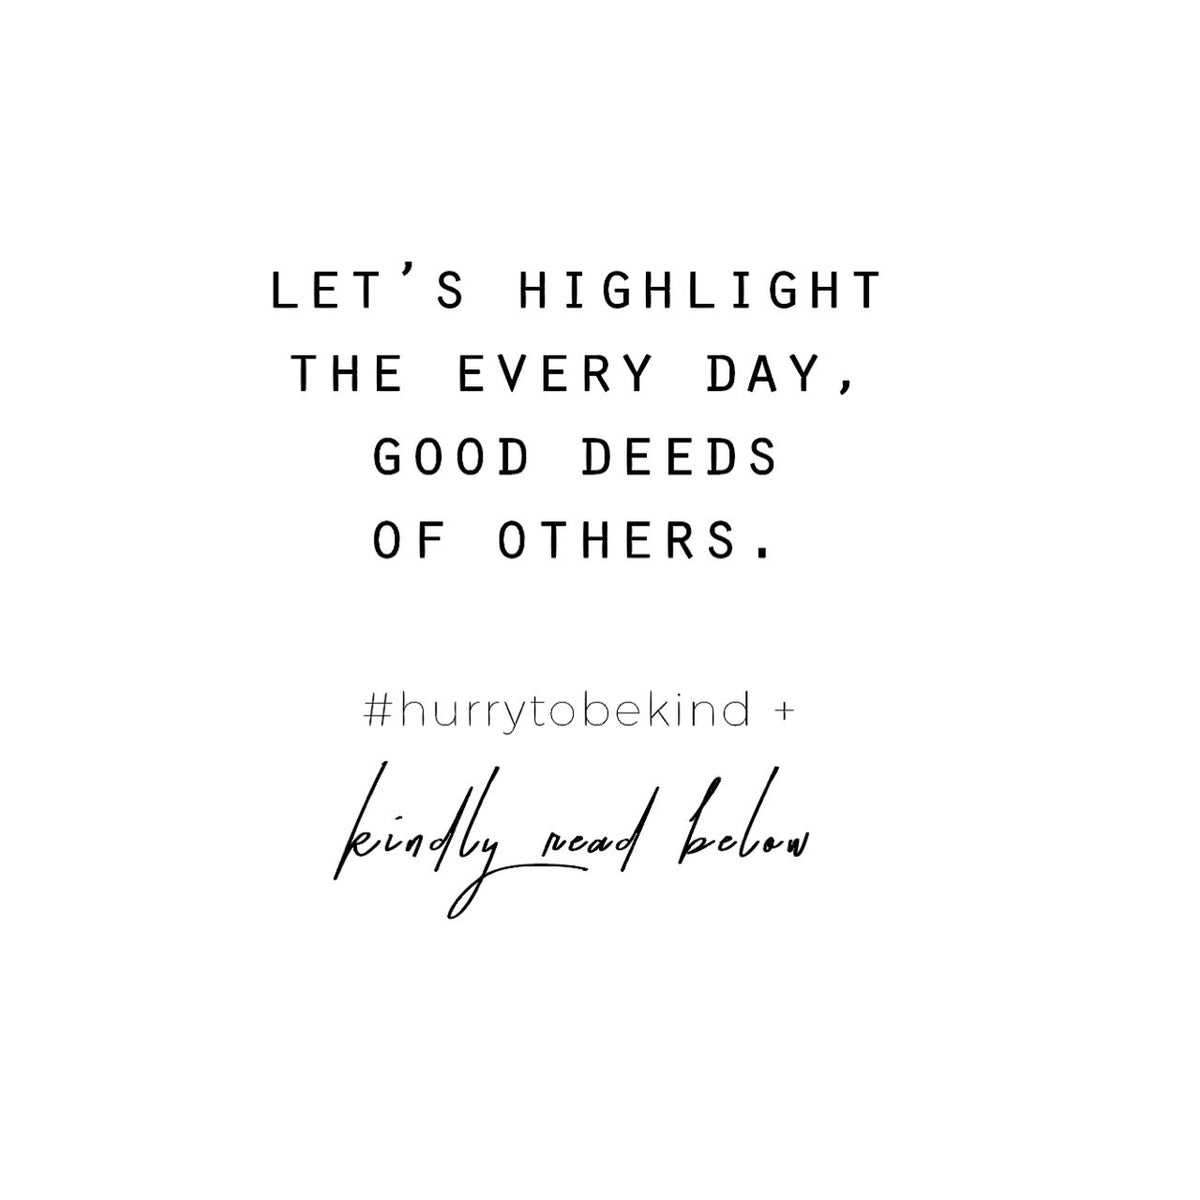 LET'S HIGHLIGHT
THE EVERY DAY,
GOOD DEEDS
OF OTHERS.
#hurrytobekind +
kindly read below